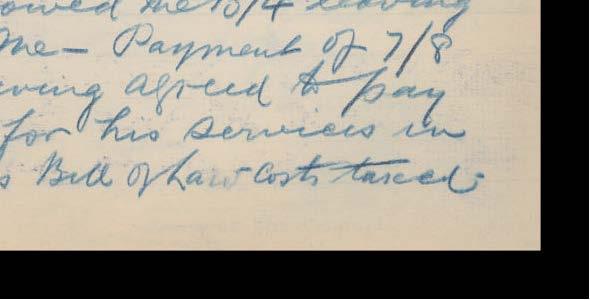 owed me 15/4 leaving
me - Payment of 7/8
ving agreed to pay
for his services in
s Bill of Law Costs taxed.